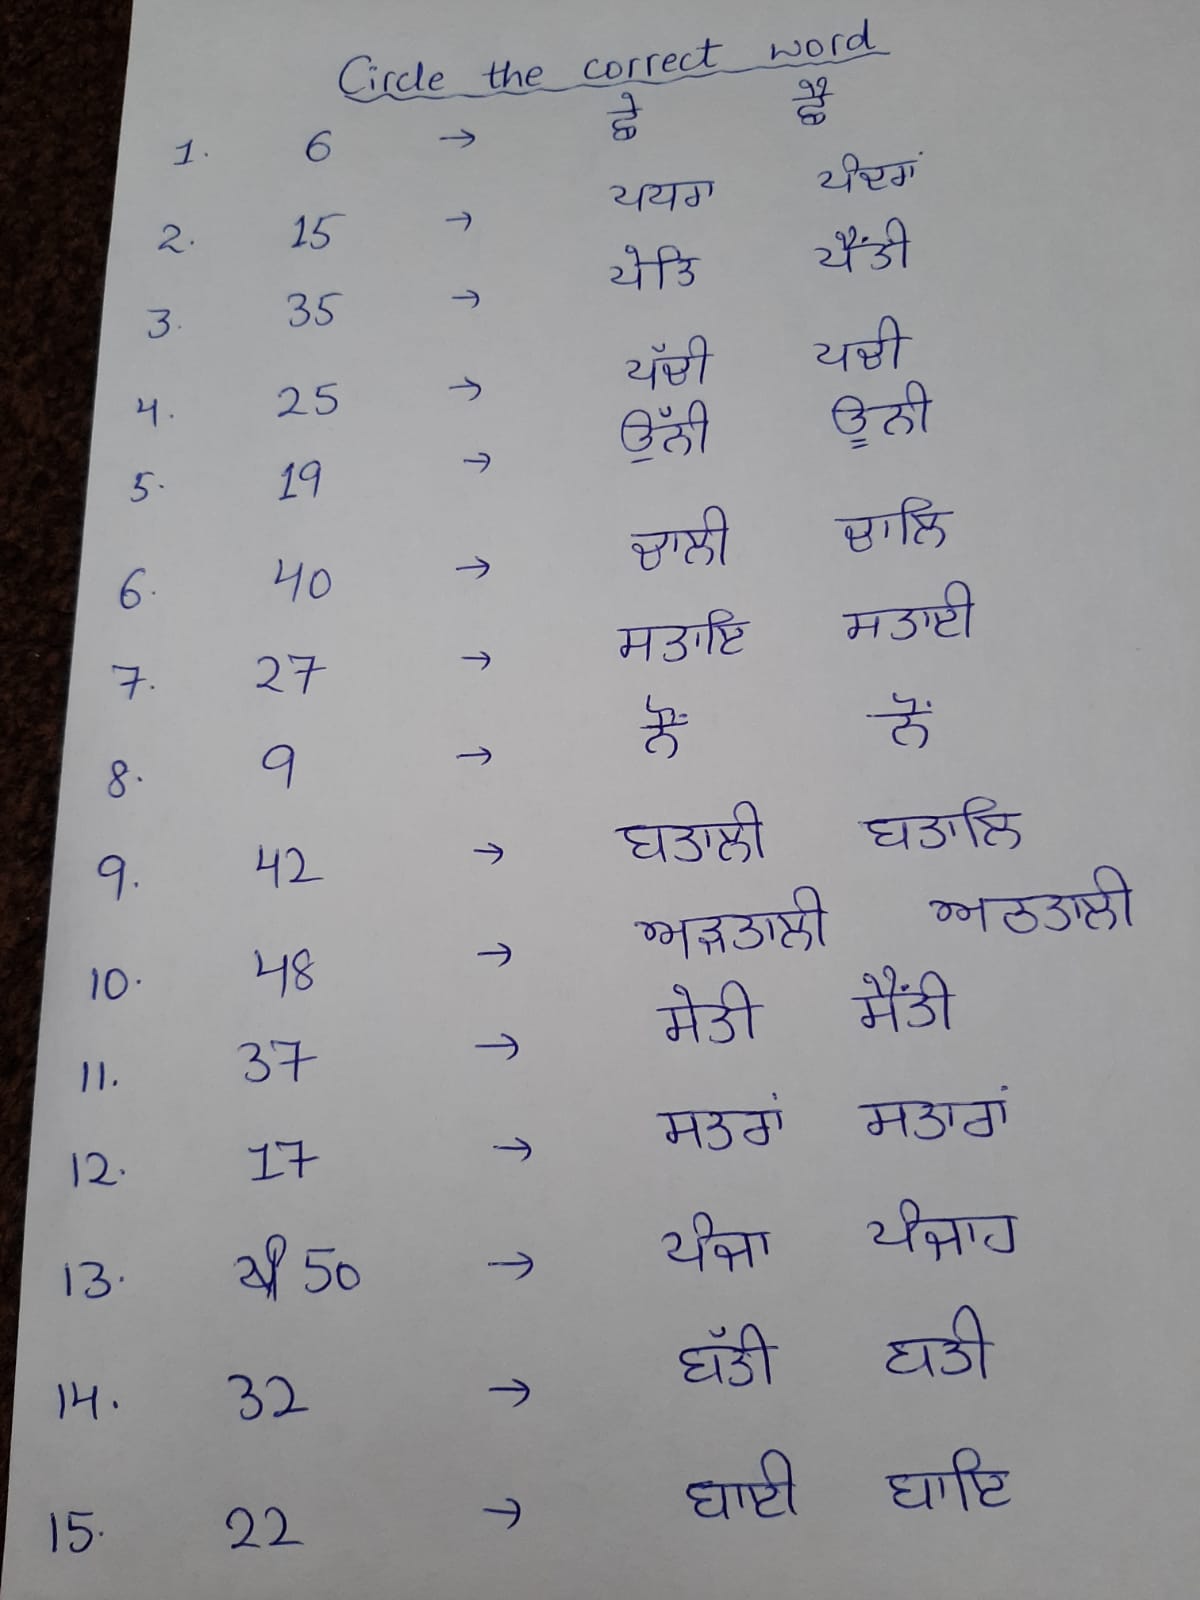 Circle the correct word
1. 6 → ਛੇ ਛੈ
2. 15 → ਪਧਰਾ ਪੰਦਰਾਂ
3. 35 → ਪੇਤਿ ਪੈਂਤੀ
4. 25 → ਪੱਚੀ ਪਚੀ
5. 19 → ਉੱਨੀ ਊਨੀ
6. 40 → ਚਾਲੀ ਚਾਲਿ
7. 27 → ਸਤਾਇ ਸਤਾਈ
8. 9 → ਨੌਂ ਨੋਂ
9. 42 → ਬਤਾਲੀ ਬਤਾਲਿ
10. 48 → ਅੜਤਾਲੀ ਅਠਤਾਲੀ
11. 37 → ਸੇਤੀ ਸੈਂਤੀ
12. 17 → ਸਤਰਾਂ ਸਤਾਰਾਂ
13. 50 → ਪੰਜਾ ਪੰਜਾਹ
14. 32 → ਬੱਤੀ ਬਤੀ
15. 22 → ਬਾਈ ਬਾਇ